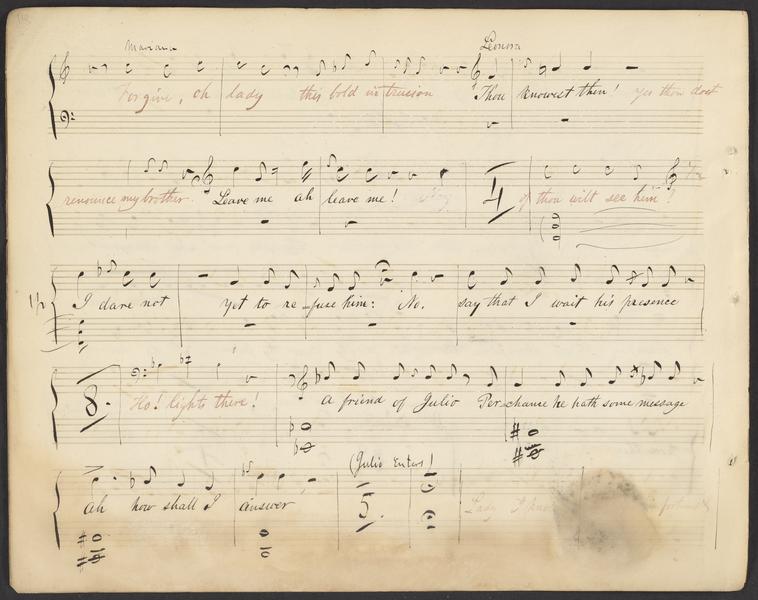 Mariana Leonora
Forgive, oh lady this bold intrusion Thou knowest then! yes thou dost
renounce my brother. Leave me ah leave me! 4 if thou wilt see him?
I dare not yet to re-fuse him: No. say that I wait his presence
8. Ho! lights there! A friend of Julio Per-chance he hath some message
ah how shall I answer
(Julio enters)
5. Lady I